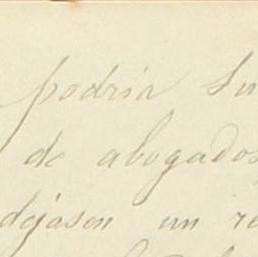 podria
de abogados
dejasen un